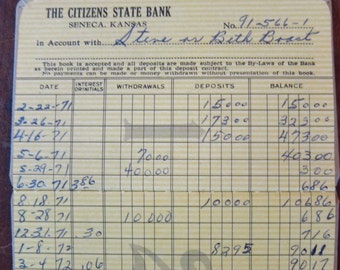 THE CITIZENS STATE BANK
SENECA, KANSAS
No. 91-566-1
in Account with Steve or Beth
This book is accepted and all deposits are made subject to the By-Laws of the Bank
as herein printed and made a part of this deposit contract.
No payments can be made or money withdrawn without presentation of this book.
DATE INTEREST OR INITIALS WITHDRAWALS DEPOSITS BALANCE
2-22-71 150 00 150 00
3-26-71 173 00 323 00
4-16-71 150 00 473 00
5-6-71 70 00 403 00
5-29-71 400 00 3 00
6-30 71 3 86 6 86
8 18 71 100 00 106 86
8-28 71 100 00 6 86
12 31 71 .30 7 16
1-8-72 82 95 90 11
3-4 72 .06 90 17